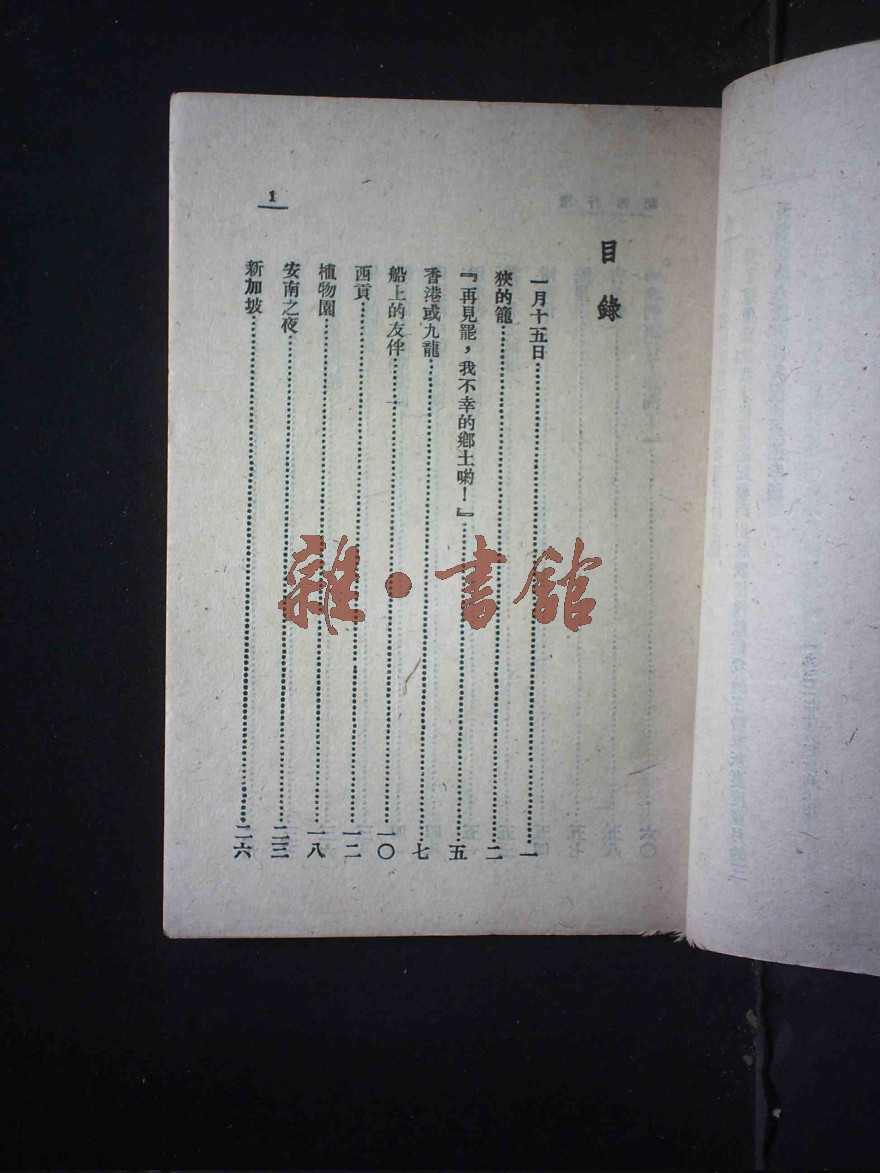 目錄
一月十五日……一
狹的籠……二
『再見罷，我不幸的鄉土喲！』……五
香港或九龍……七
船上的友伴……一〇
西貢……一二
植物園……一八
安南之夜……二三
新加坡……二六
1
雜·書館